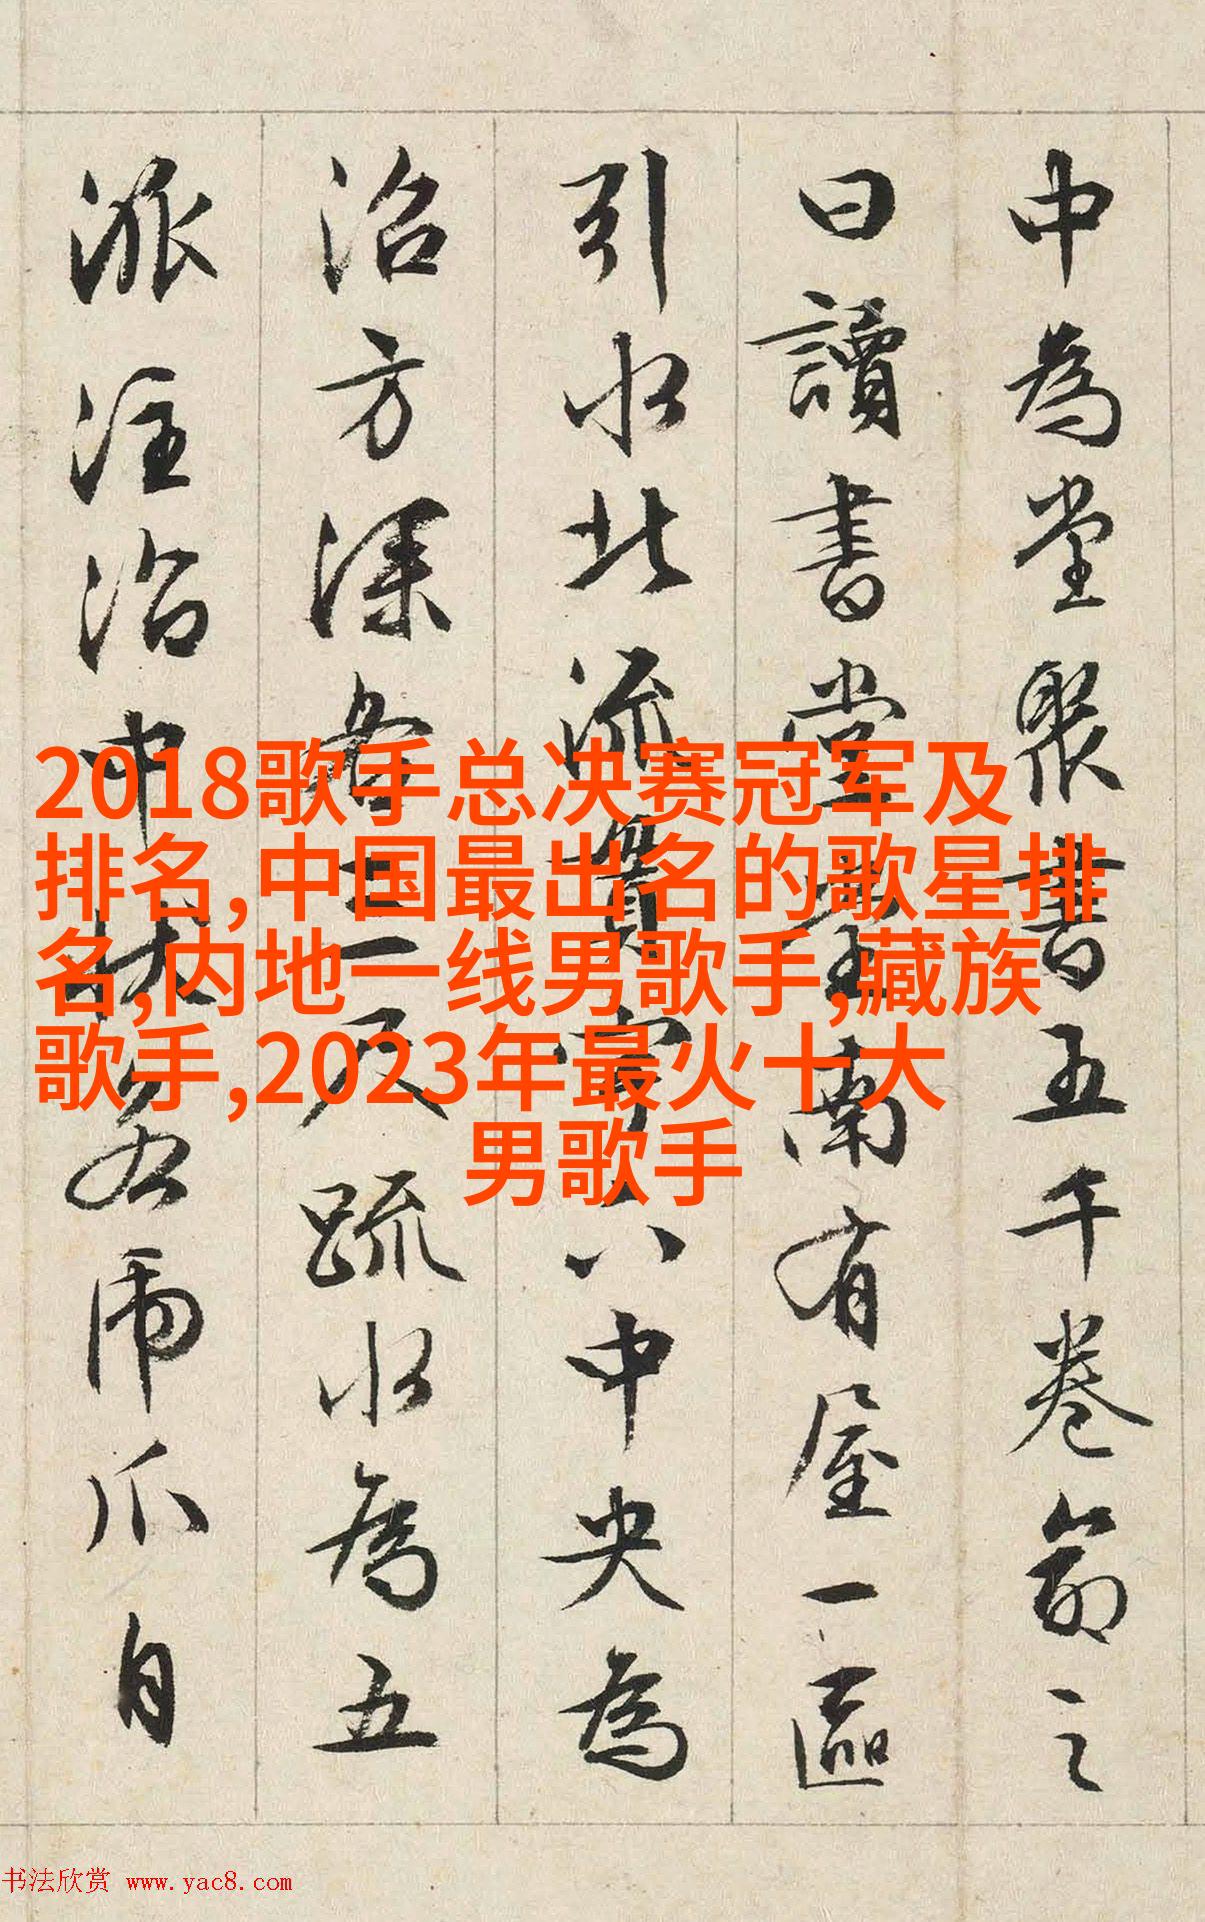 中為堂聚書五千卷命之
曰讀書堂堂南有屋一區
引水北流貫宇下中央為
沼方深各三尺疏水為五
派注沼中狀若虎爪自
2018歌手总决赛冠军及
排名,中国最出名的歌星排
名,内地一线男歌手,藏族
歌手,2023年最火十大
男歌手
书法欣赏 www.yac8.com